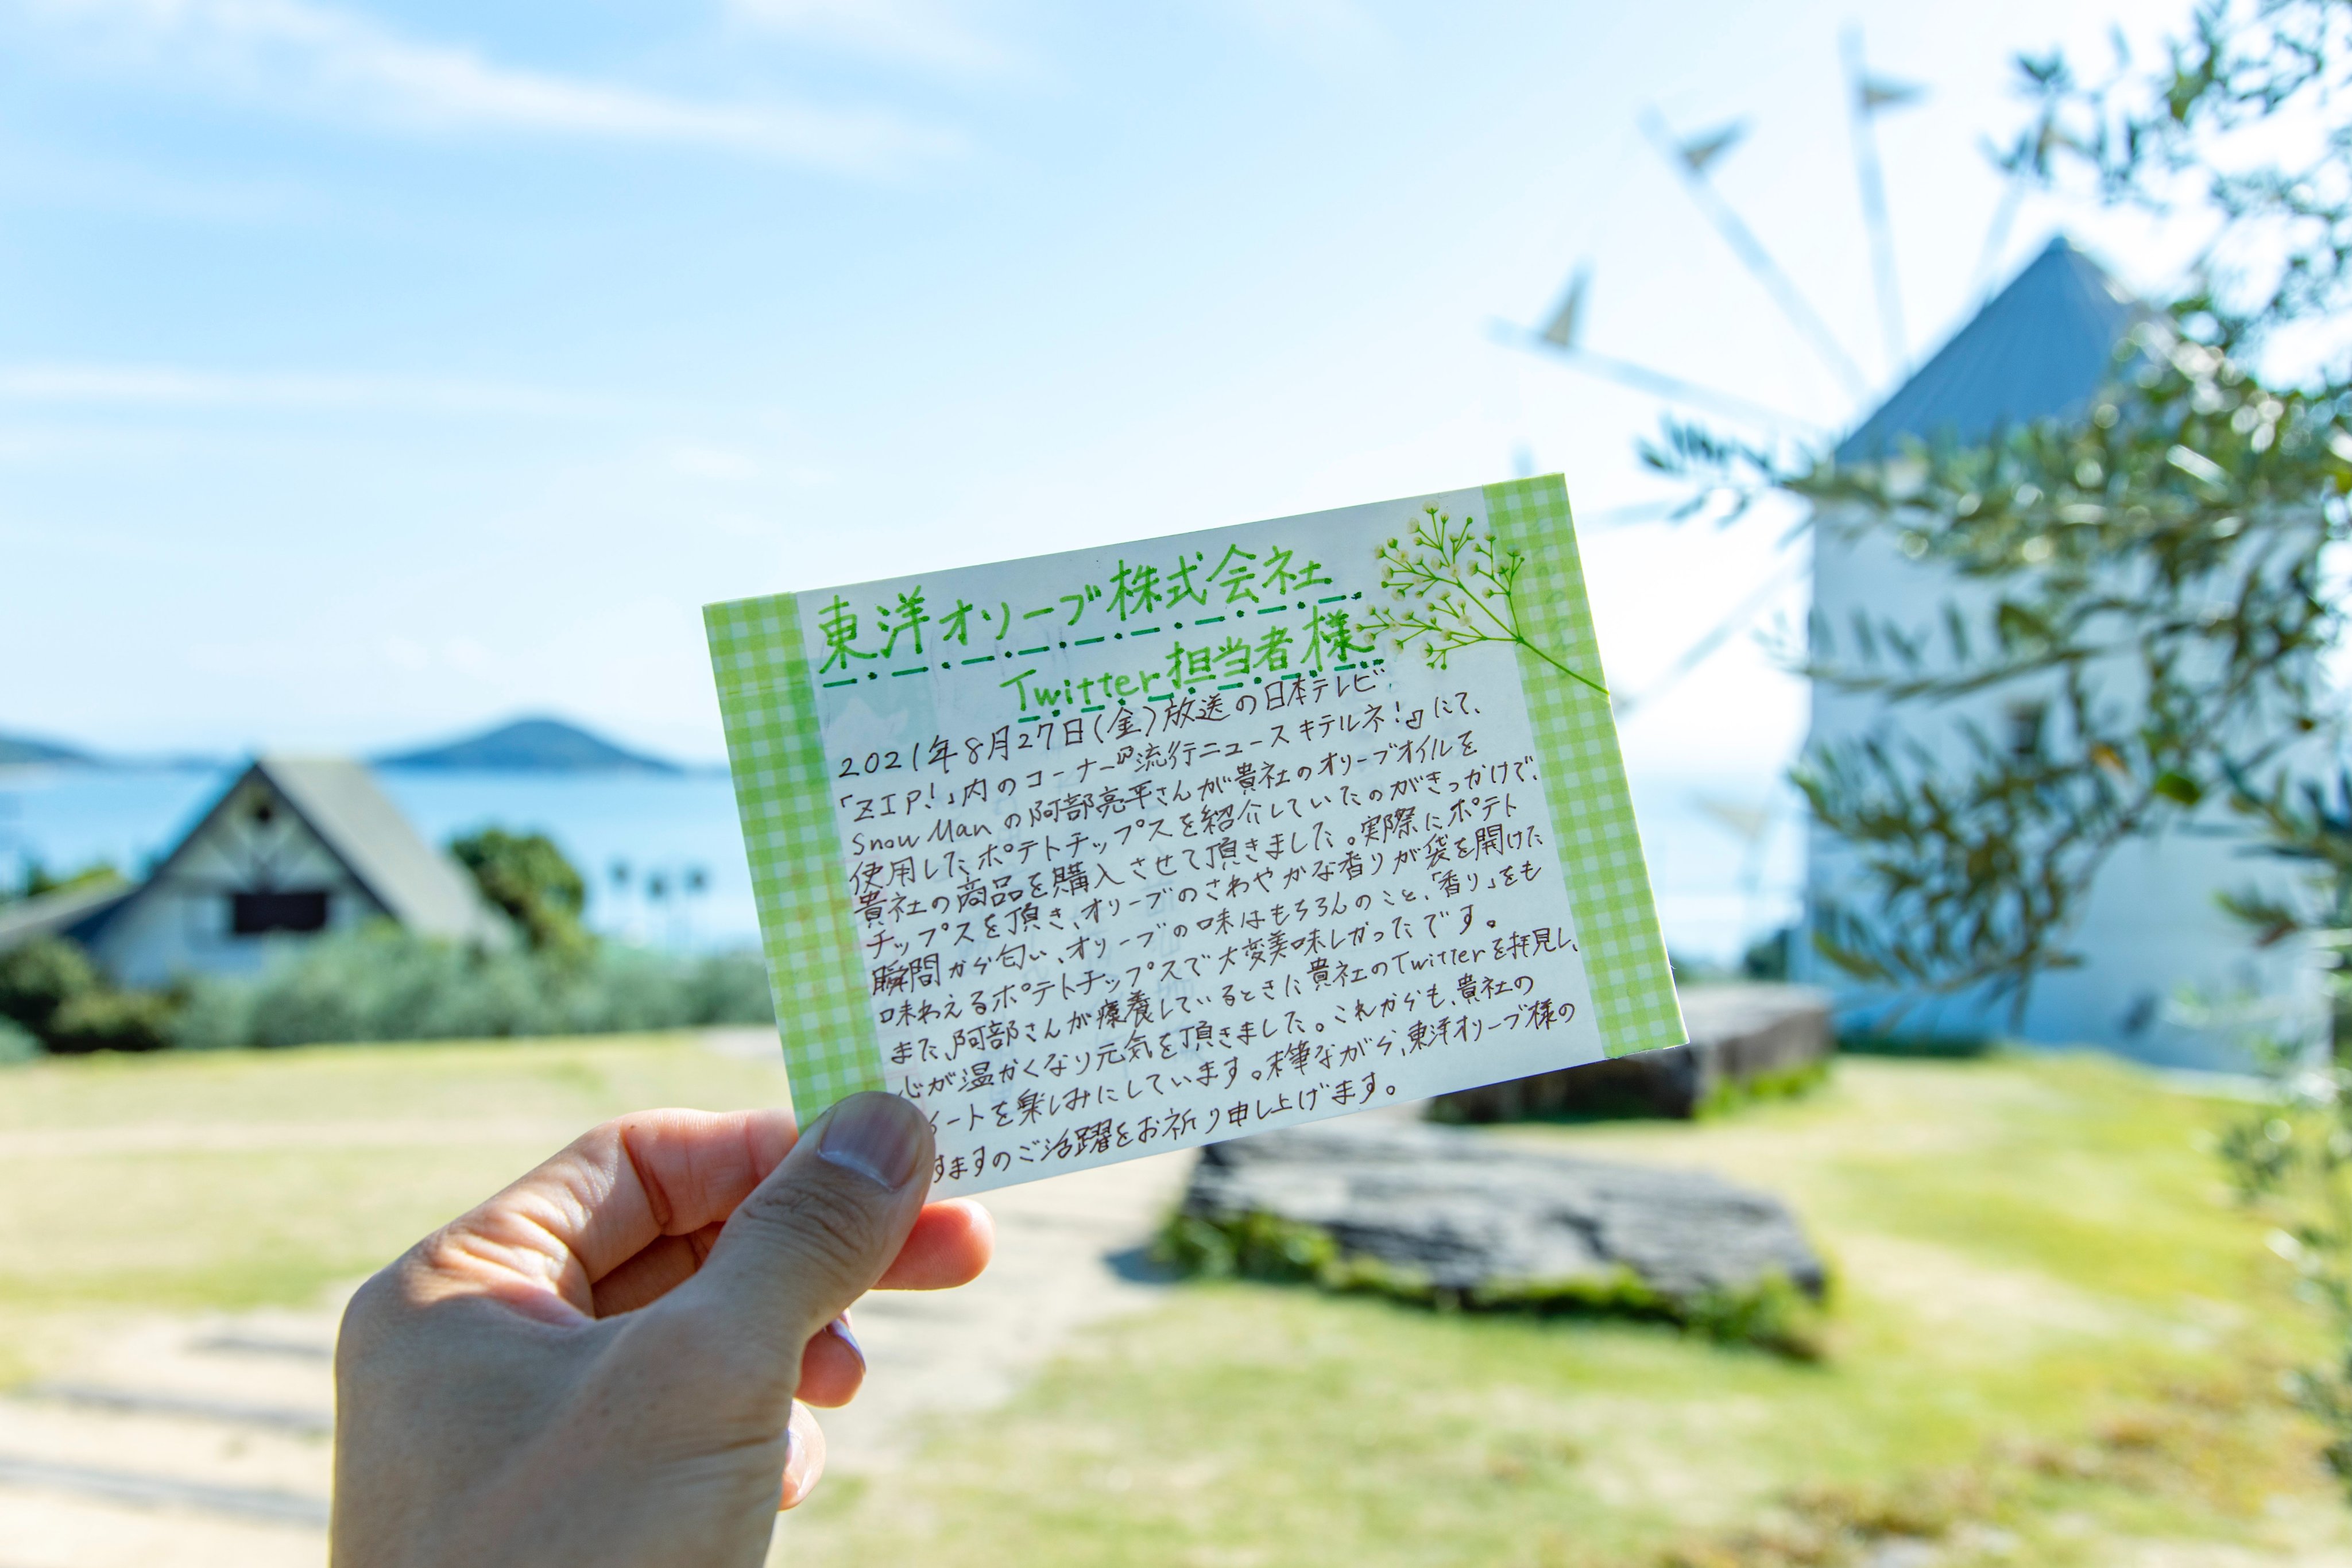 東洋オリーブ株式会社
Twitter担当者様
2021年8月27日(金)放送の日本テレビ
「ZIP!」内のコーナー『流行ニュースキテルネ!』にて、
Snow Manの阿部亮平さんが貴社のオリーブオイルを
使用したポテトチップスを紹介していたのがきっかけで、
貴社の商品を購入させて頂きました。実際にポテト
チップスを頂き、オリーブのさわやかな香りが袋を開けた
瞬間から匂い、オリーブの味はもちろんのこと、「香り」をも
味わえるポテトチップスで大変美味しかったです。
また、阿部さんが療養しているときに貴社のTwitterを拝見し、
心が温かくなり元気を頂きました。これからも、貴社の
ートを楽しみにしています。末筆ながら、東洋オリーブ様の
すますのご活躍をお祈り申し上げます。